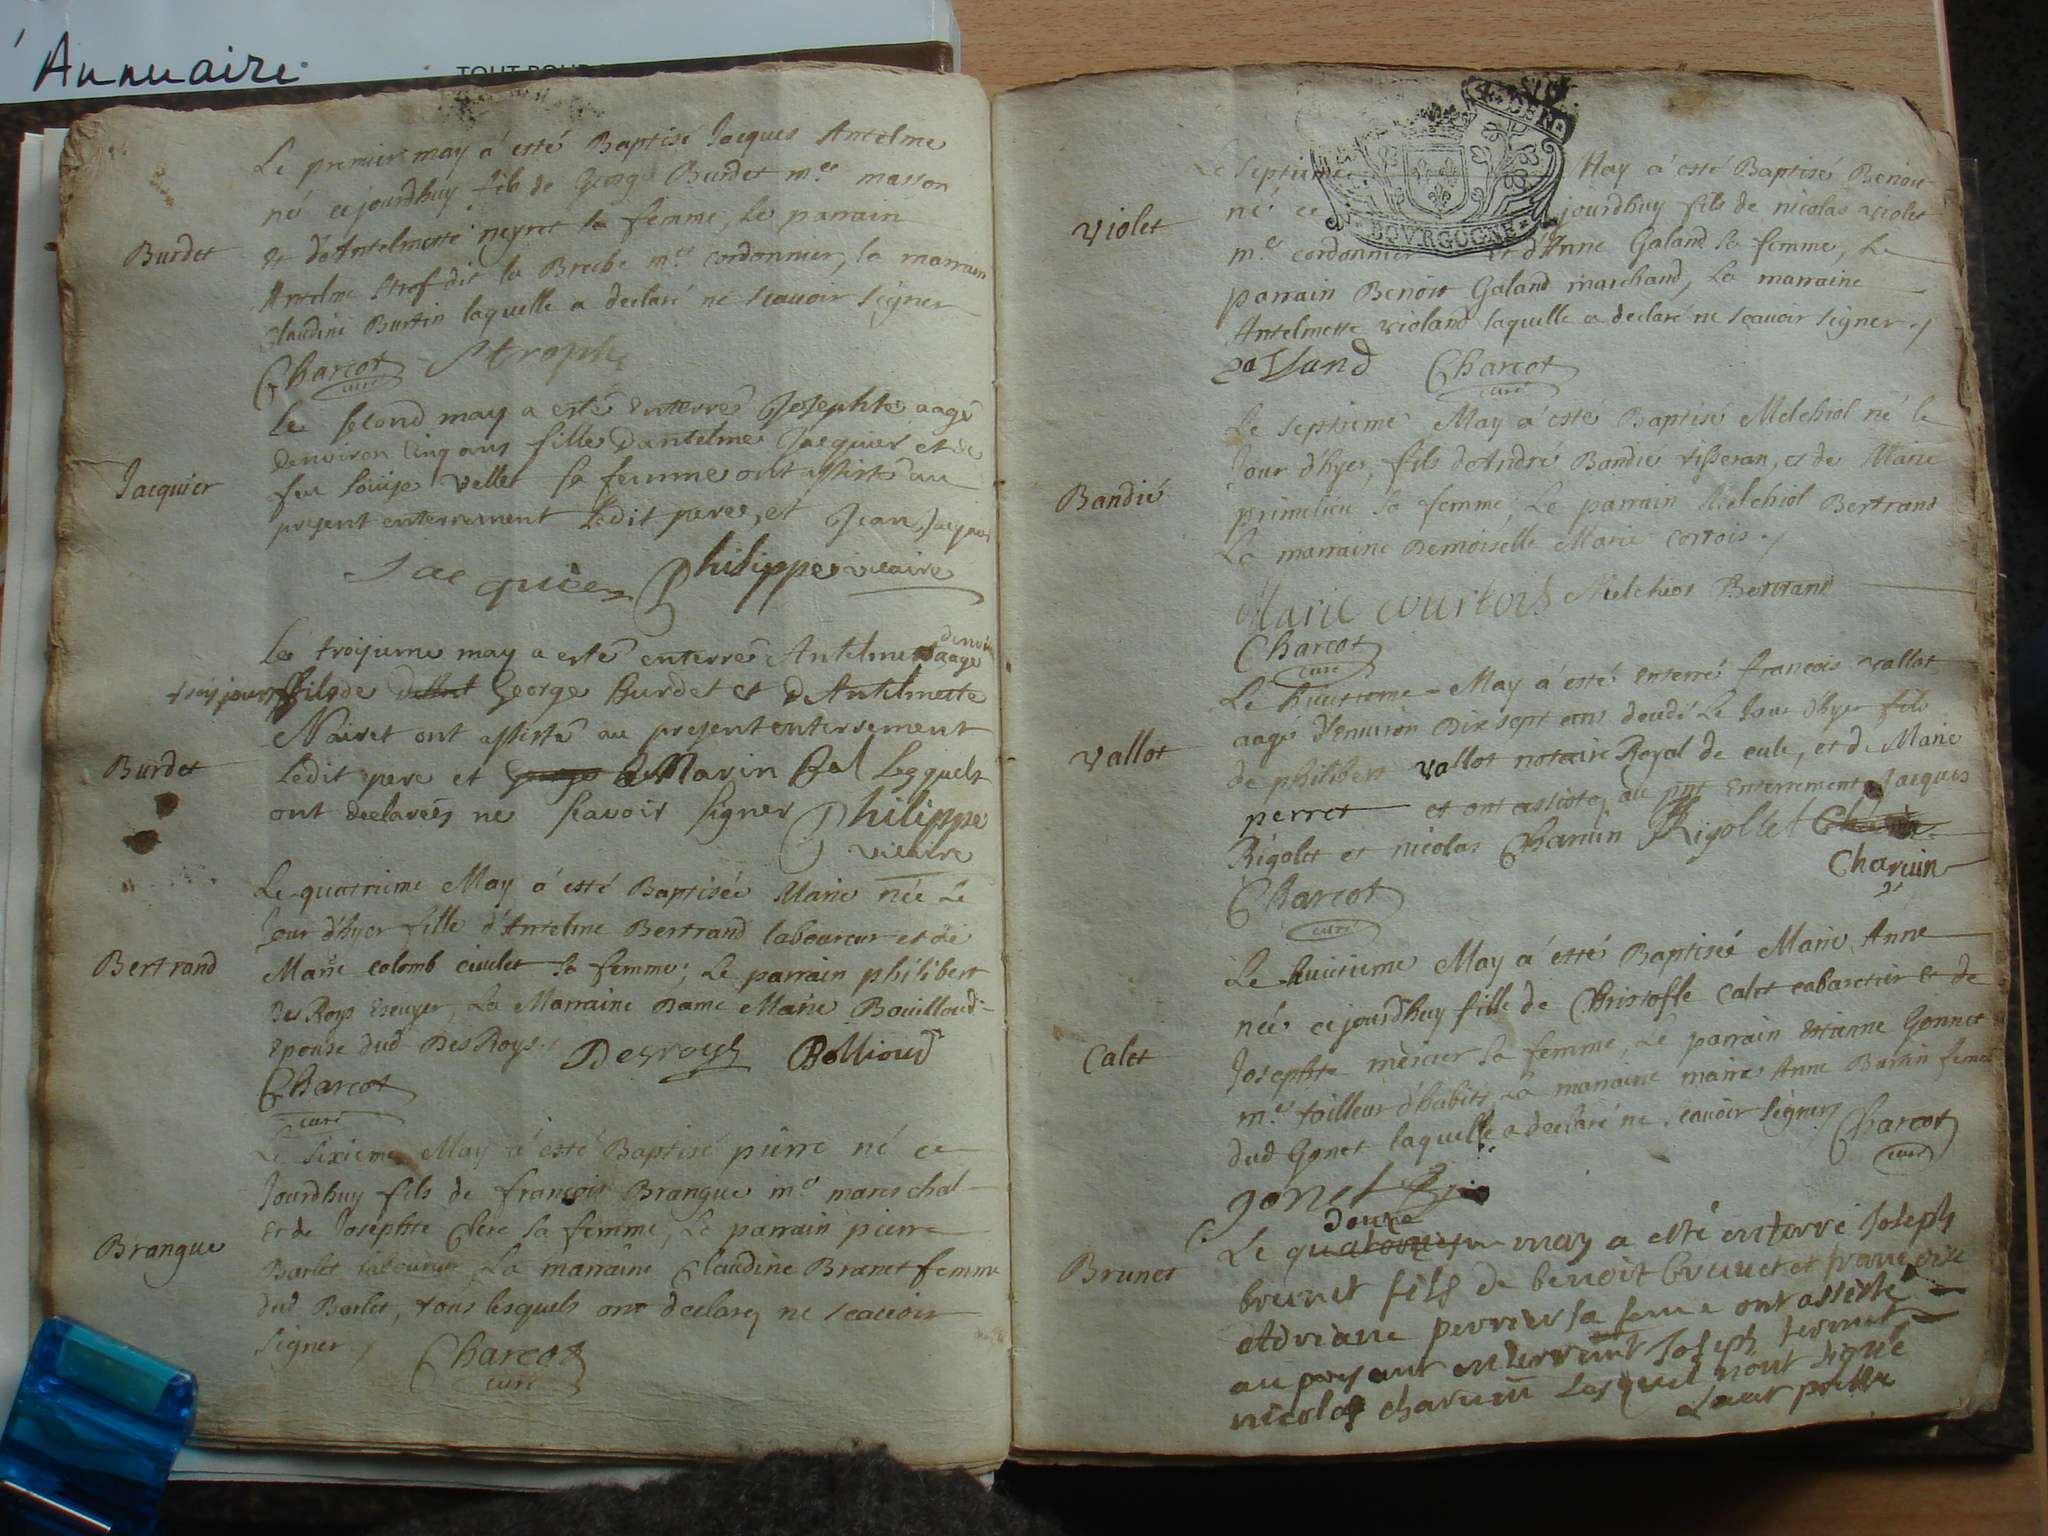 Annuaire
TOUT POUR
Le premier may a esté Baptisé Jacques Antelme
né cejourdhuy fils de George Burdet m.e masson
Burdet
et d'Antelmette neyret sa femme, Le parrain
Antelme Strof dit la m.e cordonnier, la marraine
Claudine Burtin laquelle a declaré ne scavoir signer
Charcot Stroph
curé
Le second may a esté enterré Josephte aagé
denviron cinq ans fille Dantelme Jacquier et de
Jacquier
feu Louise vellet sa femme ont assisté au
present enterrement Ledit pere, et Jean Jacques
Jacquier Philippe vicaire
Le troisieme may a esté enterré Antelme aagé denviron
trois jours fils de George Burdet et d'Antelmette
Nairet ont assisté au present enterrement
Burdet
Ledit pere et Marin Bal Lesquels
ont declarés ne scavoir signer Philippe
vicaire
Le quatrieme May a esté Baptisée Marie née Le
Jour d'hyer fille d'Antelme Bertrand laboureur et de
Bertrand
Marie colomb civulet sa femme; Le parrain philibert
Des Roys Escuyer, La Marraine Dame Marie Bouilloud
Epouse dud Des Roys.
Desroys Bollioud
Charcot
curé
Le sixieme May a esté Baptisé pierre né ce
Jourdhuy fils de françois Brangue m.e mareschal
et de Josephte Clere sa femme, Le parrain pierre
Brangue
Barlet laboureur, La marraine Claudine Branet femme
dud Barlet, tous lesquels ont declaré ne scavoir
signer
Charcot
curé
BOURGOGNE
Le Septieme May a esté Baptisé Benoit
né ce jourdhuy fils de nicolas violet
violet
m.e cordonnier et d'Anne Galand sa femme, Le
parrain Benoit Galand marchand, La marraine
Antelmette violand laquelle a declaré ne scavoir signer
galland Charcot
curé
Le septieme May a esté Baptisé Melchiol né le
Jour d'hyer, fils d'André Bandié tisseran, et de Marie
Bandié
primelieu sa femme, Le parrain Melchiol Bertrand
La marraine Demoiselle Marie cortois
Marie courtois Melchior Bertrand
Charcot
curé
Le huictieme May a esté enterré francois vallot
aagé d'Environ Dix sept ans decedé Le Jour d'hyer fils
vallot
de philibert vallot notaire Royal de cule, et de Marie
perret et ont assisté au pnt Enterrement Jacques
Rigolet et nicolas Charvin Rigollet
Charvin
Charcot
curé
Le huitieme May a esté Baptisée Marie Anne
née cejourd'huy fille de Christofle calet cabaretier et de
Calet
Josephte mercier sa femme, Le parrain Estienne Gonnet
m.e tailleur d'habits, La marraine marie Anne Burtin femme
dud Gonet laquelle a declaré ne scavoir signer Charcot
curé
gonet
douze
Le may a esté enterré Joseph
Brunet
brunet fils de benoit brunet et francoise
Adriane perrier sa feme ont assisté
au present enterrement Joseph
nicolas charvin Lesquel nont signé